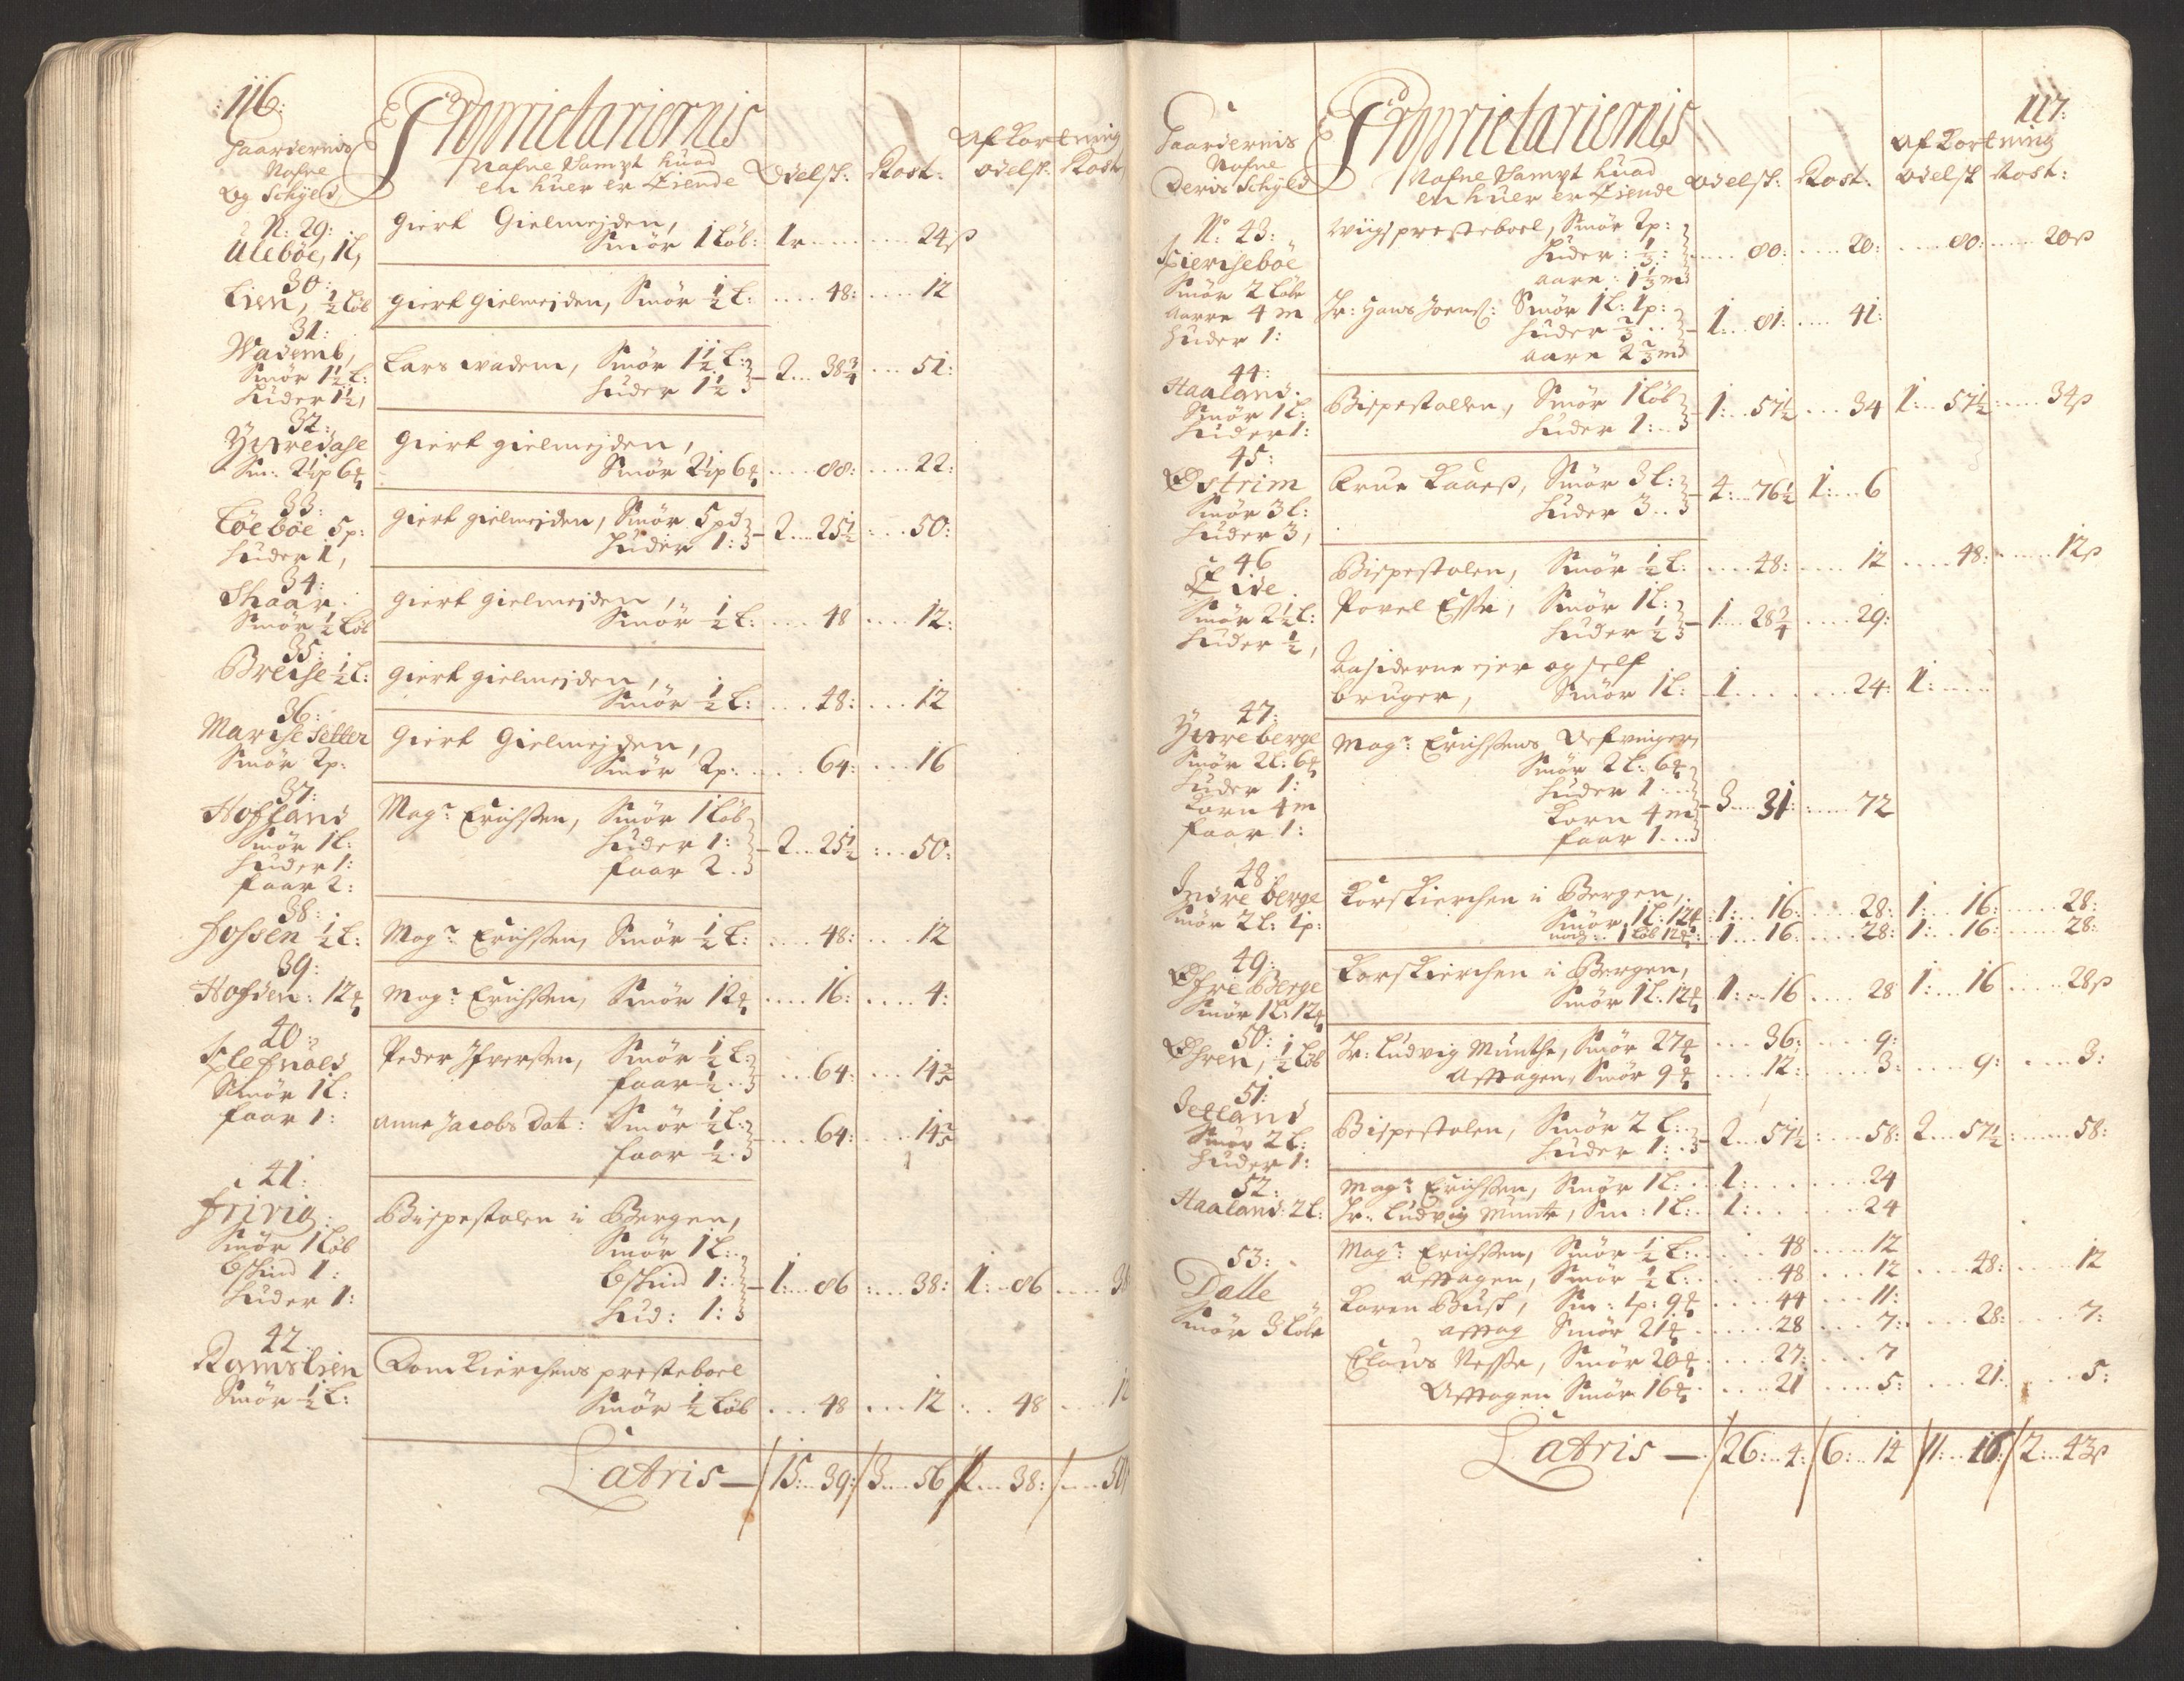 :116:
Gaardernis
Nafne
Og Schyld,
Proprietariernis
Nafne Sampt huad
en huer er Eiende
Odelsk:
Rost:
Afkortning
Odelsk:
Rost:
N: 29:
Ulebøe, 1L,
Giert Gielmejden,
Smør 1 Løb: 1r ..... 24 ß
30:
Lien, ½ Løb
Giert Gielmejden, Smør ½ L: .... 48: .... 12
31:
Wademb,
Smør 1½ L:
Huder 1½,
Lars wadem, Smør 1½ L:
Huder 1½ - 2... 38¾ ... 51:
32:
Yttredale
Sm: 2½p 6
Giert gielmejden,
Smør 2½p 6 .... 88: .... 22:
33:
Løebøe 5p:
Huder 1,
Giert gielmejden, Smør 5pd
Huder 1: - 2... 25½ ... 50:
34:
Skaar
Smør ½ Løb
Giert gielmejden,
Smør ½ L: .... 48 .... 12:
35:
Breche ½ L:
Giert gielmejden,
Smør ½ L: ... 48: ... 12
36:
Marche setter
Smør 2p:
Giert Gielmejden,
Smør 2p: .... 64: ... 16
37:
Hofland
Smør 1L:
Huder 1:
faar 2:
Magr: Erichssen, Smør 1 Løb
Huder 1:
faar 2. - 2... 25½ ... 50:
38:
½ L:
Magr: Erichssen, Smør ½ L: .... 48: ... 12
39:
Hofden: 12
Magr: Erichssen, Smør 12 .... 16: .... 4:
40:
Smør 1L:
faar 1:
Peder Ifversen, Smør ½ L:
faar ½ .. ... 64: ... 14⅖
Anne Jacobs Dat: Smør ½ L:
faar ½. .... 64: .... 14⅖
41:
Smør 1 Løb
Huder 1:
Bispestolen i Bergen,
Smør 1L:
1:
Hud: 1: - 1: ... 86 ... 38: 1: .. 86 .... 38
42.
Ramslien
Smør ½ L:
Domkierchens presteboel
Smør ½ Løb ... 48 ... 12 ... 48 .... 12
Latris — 15: .. 39: 3... 56 2... 38: .... 50
117:
Gaardernis
Nafne
Deris Schyld
Proprietariernis
Nafne Sampt huad
en huer er Eiende
Odelsk:
Rost:
Afkortning
Odelsk
Rost:
No: 43:
Smør 2 Løbe
aarre 4 m
Huder 1:
Wiigs presteboel, Smør 2p:
Huder: ⅓:
aarn: 1⅓ m .... 80: .... 20: .... 80: .... 20 ß
Hr: Hans Joens: Smør 1L: 1p:
Huder ⅔ ..
aarn 2⅔ m - 1: .. 81: .... 41:
44:
Haaland.
Smør 1L:
Huder 1:
Bispestolen, Smør 1 Løb
Huder 1: .. - 1: .. 57½ ... 34 1: .. 57½ .... 34 ß
45:
Østrim
Smør 3L:
Huder 3,
Frue Kaaes, Smør 3L:
Huder 3 .. - 4: .. 76½ 1: .. 6
46
Eide.
Smør 2½ L:
Huder ½,
Bispestolen, Smør ½ L: .... 48: .... 12 .... 48: .... 12 ß
Povel Esse, Smør 1L:
Huder ½ - 1... 28¾ .... 29:
ejer og self
bruger, Smør 1L: - 1 ..... 24: 1: ....
47:
Yttreberge
Smør 2L: 6
Huder 1:
Korn 4m
faar 1:
Magr: Erichssens Arfvinger
Smør 2L: 6
Huder 1 ...
Korn 4m
faar 1... - 3... 31: .... 72
48
Indre berge
Smør 2L: 1p:
Korskierchen i Bergen,
Smør 1L: 12 - 1: .. 16: .... 28: 1: .. 16: .... 28:
noch .. 1 Løb 12 .. 1 .. 16: .... 28: 1: .. 16: .... 28:
49:
Øfre Berge
Smør 1L: 12
Korskierchen i Bergen,
Smør 1L: 12 1: ... 16 .... 28 1: ... 16 .... 28 ß
50:
Øhren, ½ Løb
Hr: Ludvig Munthe, Smør 27 ... 36: .... 9:
Afftagen, Smør 9 .... 12: .... 3: ... 9: .... 3:
51:
Jetland
Smør 2L:
Huder 1:
Bispestolen, Smør 2L: ..
Huder 1: . - 2... 57½ .... 58: 2... 57½ .... 58:
52:
Haaland: 2L:
Magr: Erichssen, Smør 1L: .. 1: ..... 24
Hr: Ludvig Munte, Sm: 1L: . 1: ..... 24
53:
Dalle
Smør 3 Løbe
Magr: Erichssen, Smør ½ L: .... 48 .... 12
afftagen, Smør ½ L: .... 48 ... 12 .... 48: .... 12
Karen Busk, Sm: 1p: 9 .... 44 ... 11:
afftag Smør 21 .... 28 ... 7: .... 28: .... 7:
Claus Nesse, Smør 20 .... 27: .... 7
Afftagen Smør 16 .... 21 .... 5: .... 21: .... 5:
Latris — 26: .. 4: 6: .. 14 11: .. 16: 2: .. 43 ß